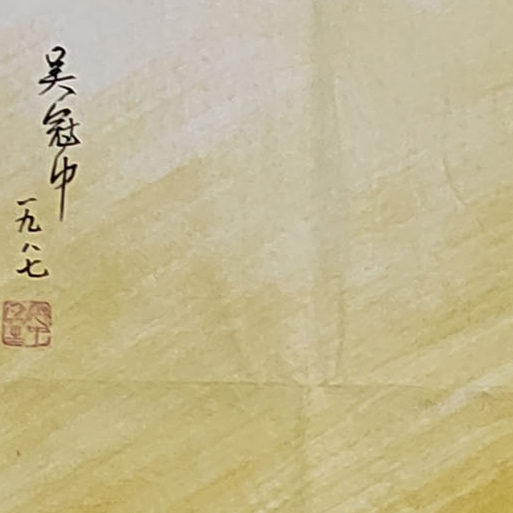 吴冠中
一九八七